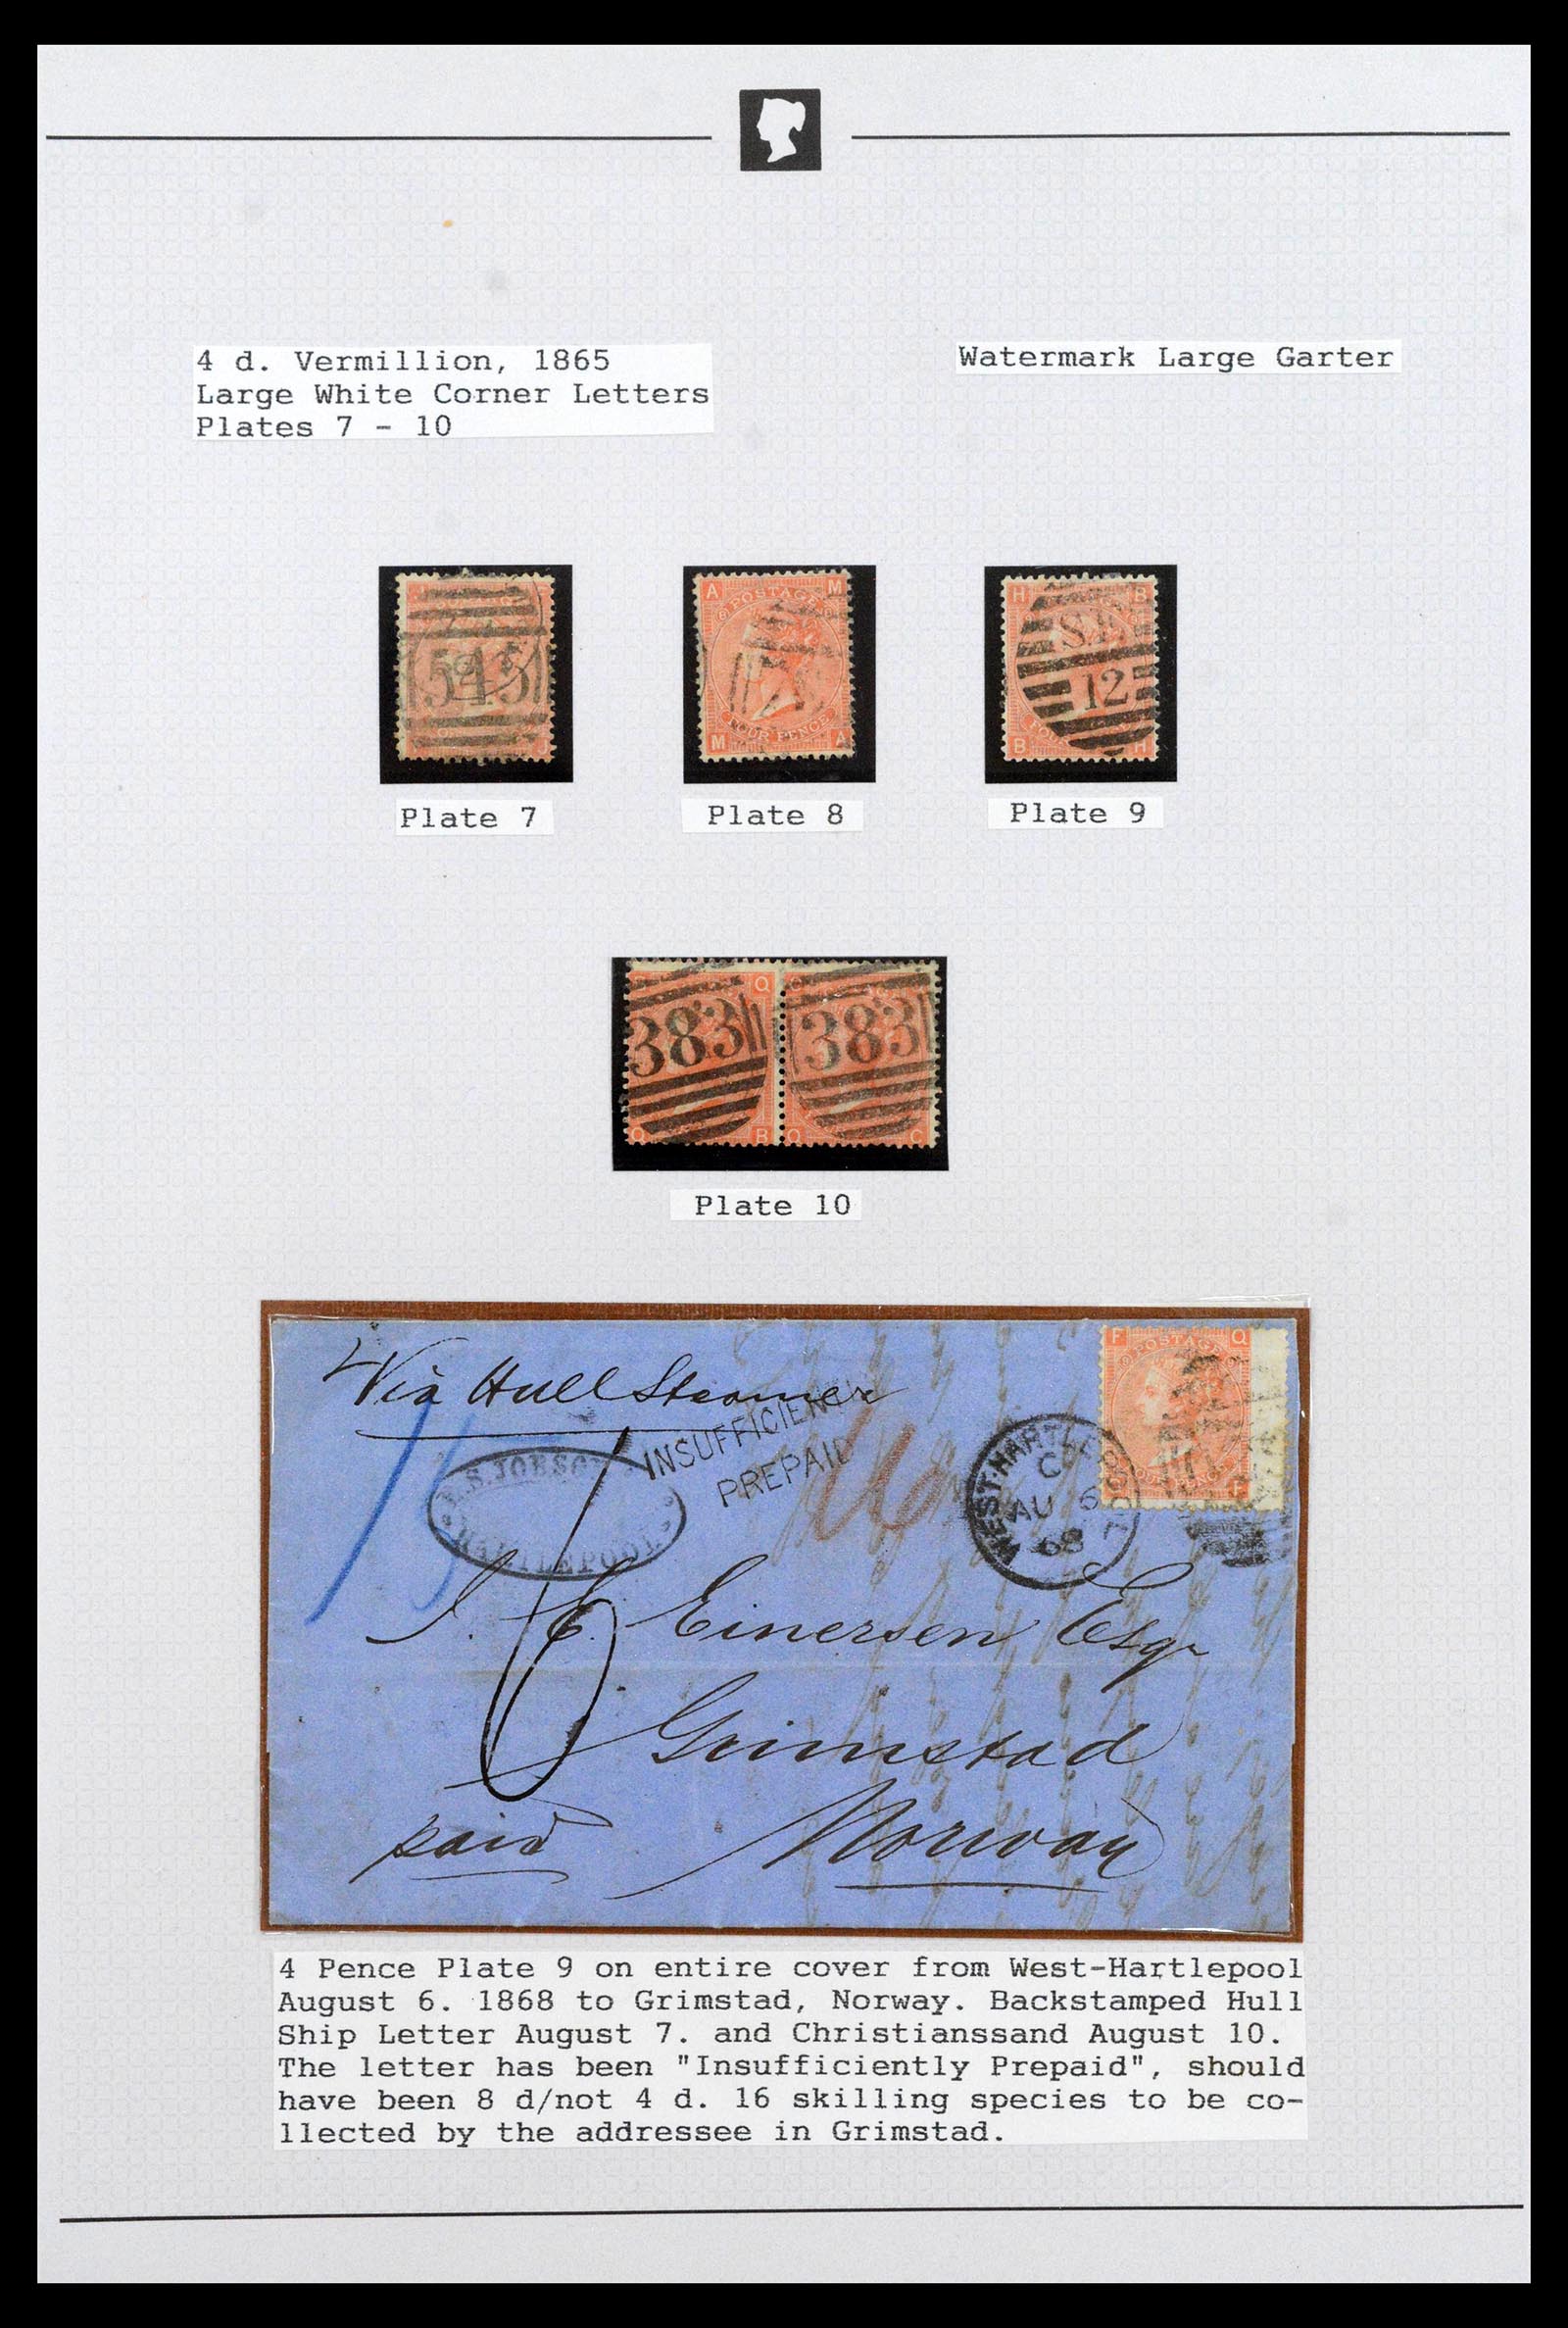 4 d. Vermillion, 1865
Large White Corner Letters
Plates 7 - 10
Watermark Large Garter
545
J
A M
POSTAGE
FOUR PENCE
M A
H B
12
B H
Plate 7
Plate 8
Plate 9
Q
383 383
Q B Q C
Plate 10
Via Hull Steamer
INSUFFICIENTLY
PREPAID
S. JOBSON
HARTLEPOOL
WEST-HARTLEPOOL
C
AU 6
68
F Q
POSTAGE
J. C. Einersen Esqr
Grimstad
paid Norway
4 Pence Plate 9 on entire cover from West-Hartlepool
August 6. 1868 to Grimstad, Norway. Backstamped Hull
Ship Letter August 7. and Christianssand August 10.
The letter has been "Insufficiently Prepaid", should
have been 8 d/not 4 d. 16 skilling species to be co-
llected by the addressee in Grimstad.